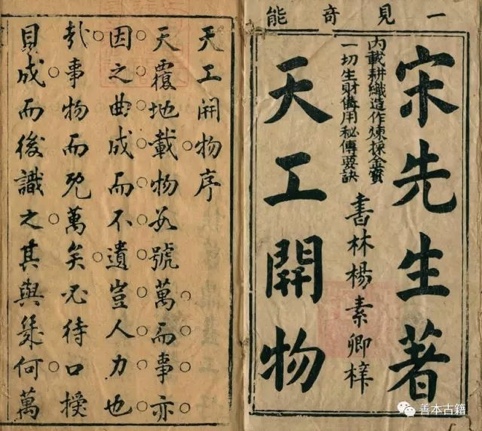 一見奇能
宋先生著
內載耕織造作煉採金寶
一切生財備用秘傳要訣
書林楊素卿梓
天工開物
天工開物序
天覆地載物数號萬而事亦
因之曲成而不遺豈人力也
哉事物而既萬矣必待口授
目成而後識之其與幾何萬
善本古籍